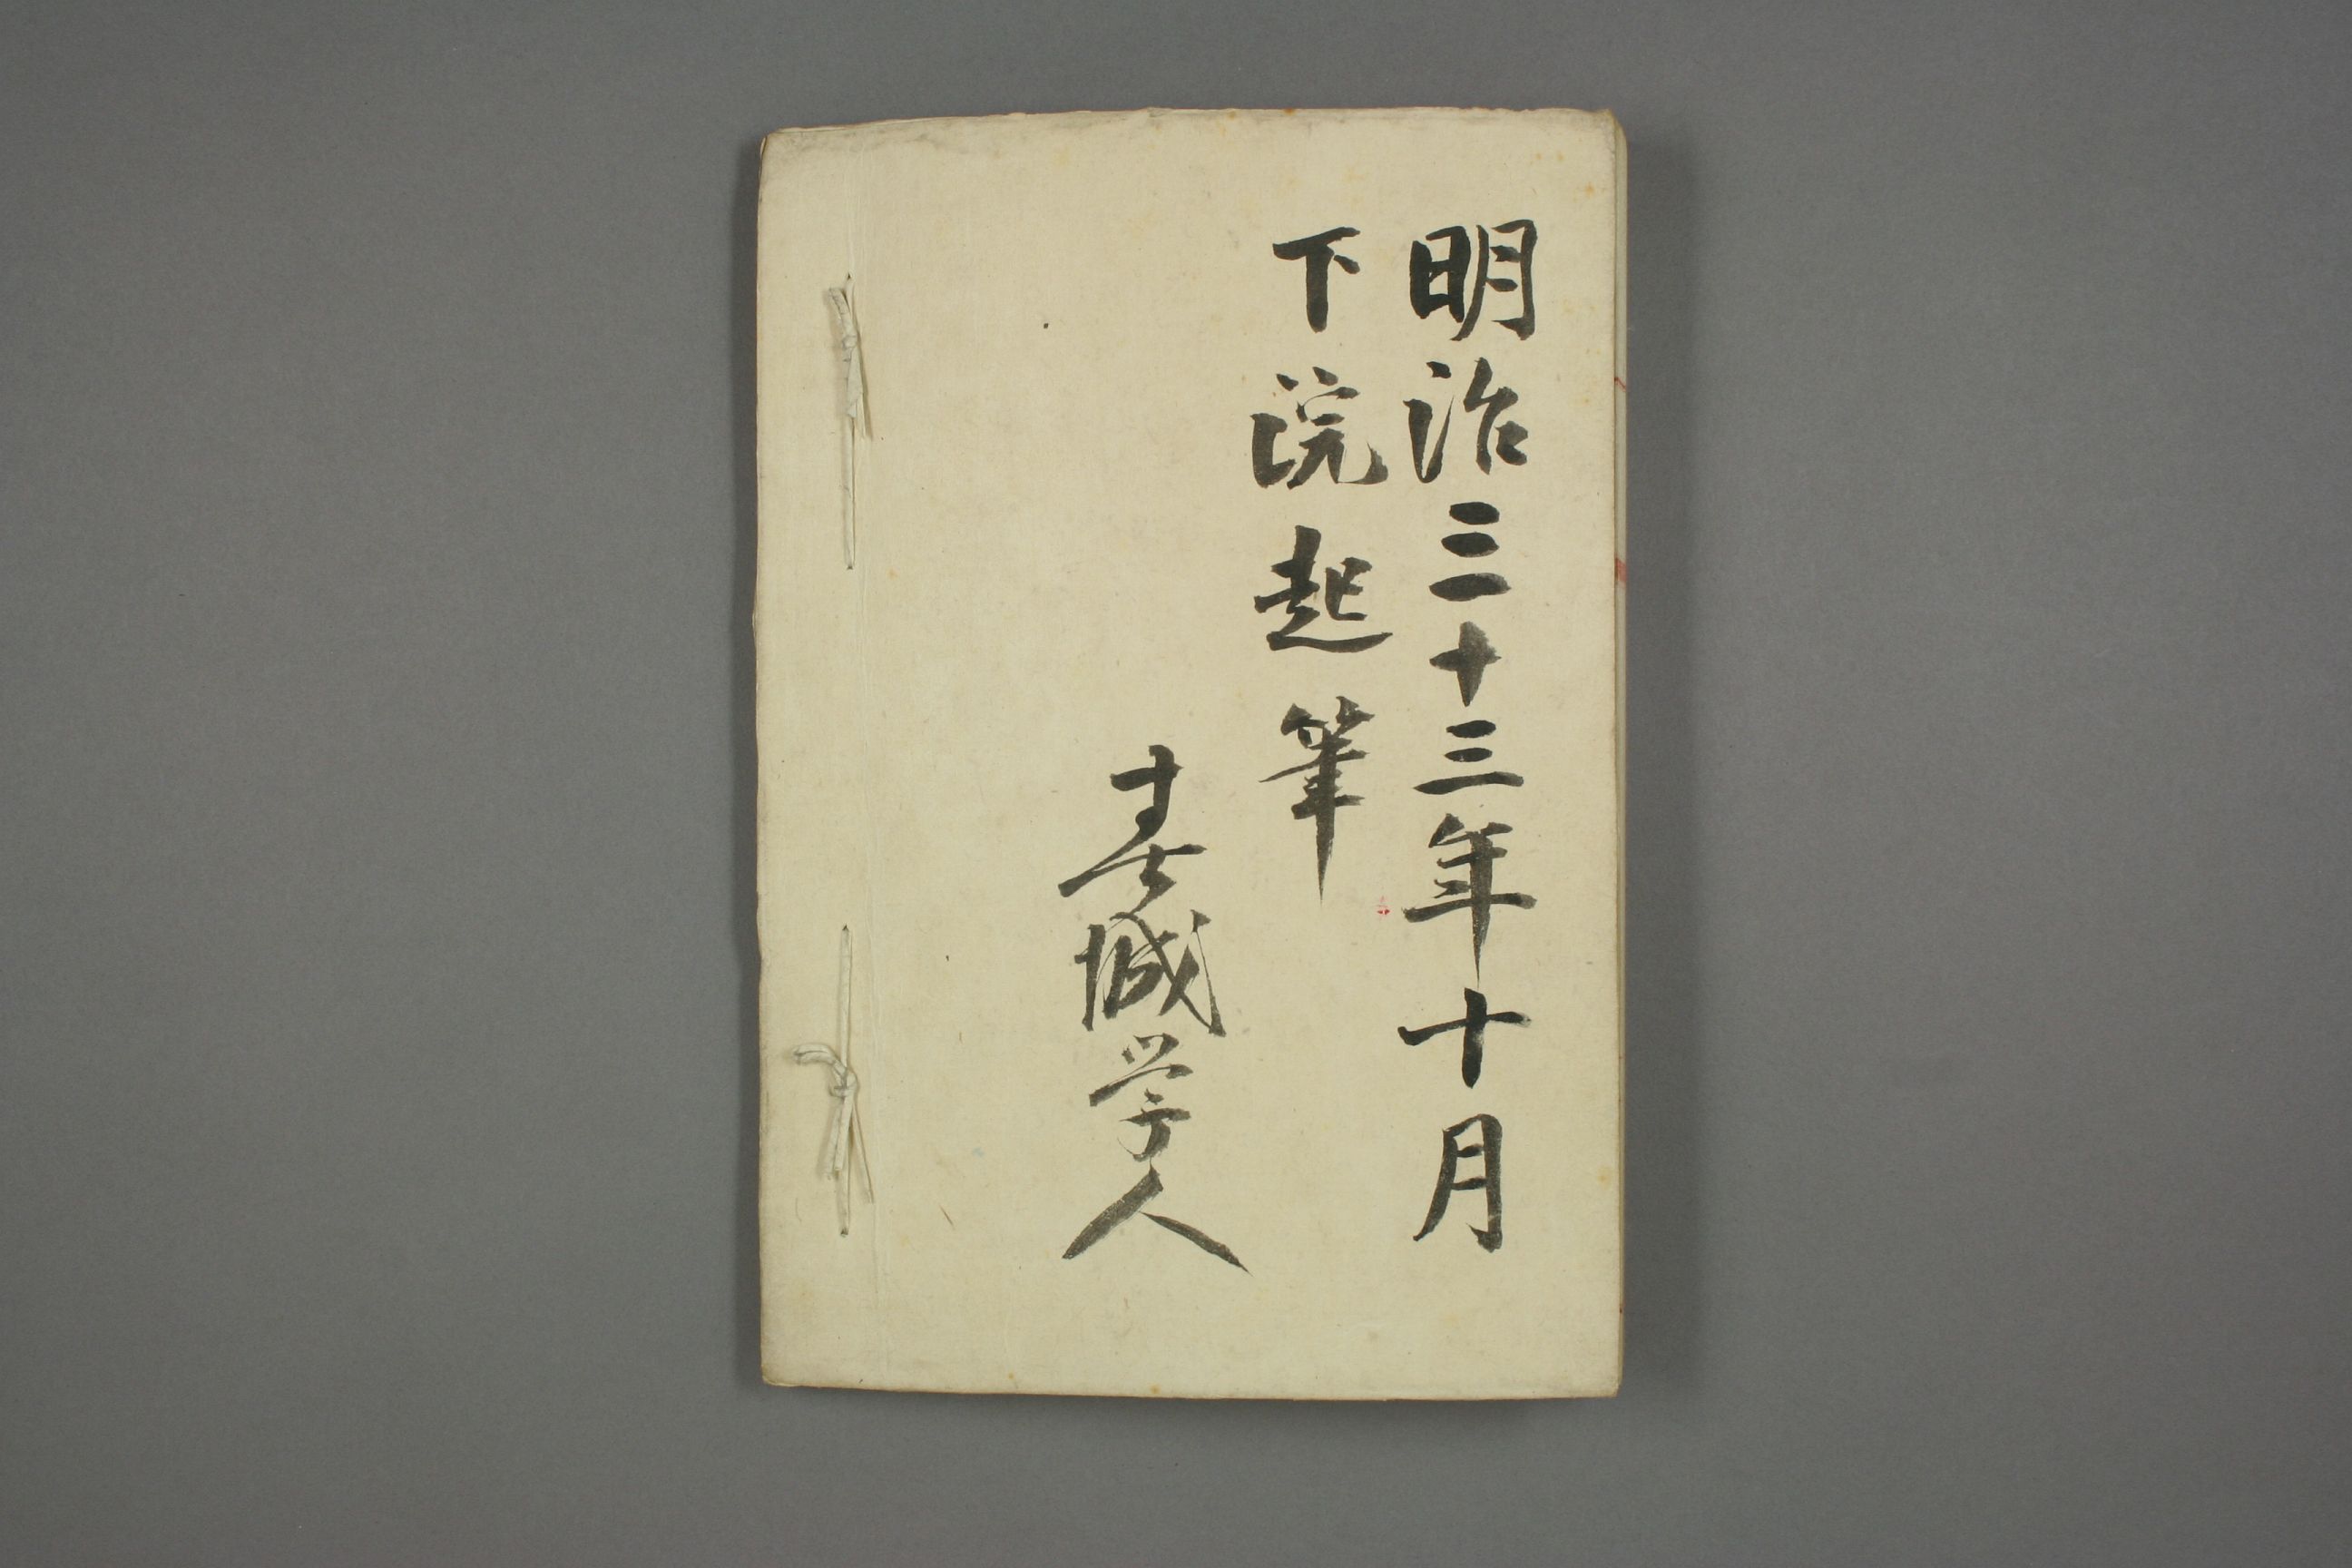 明治三十三年十月
下浣起筆
春城学人